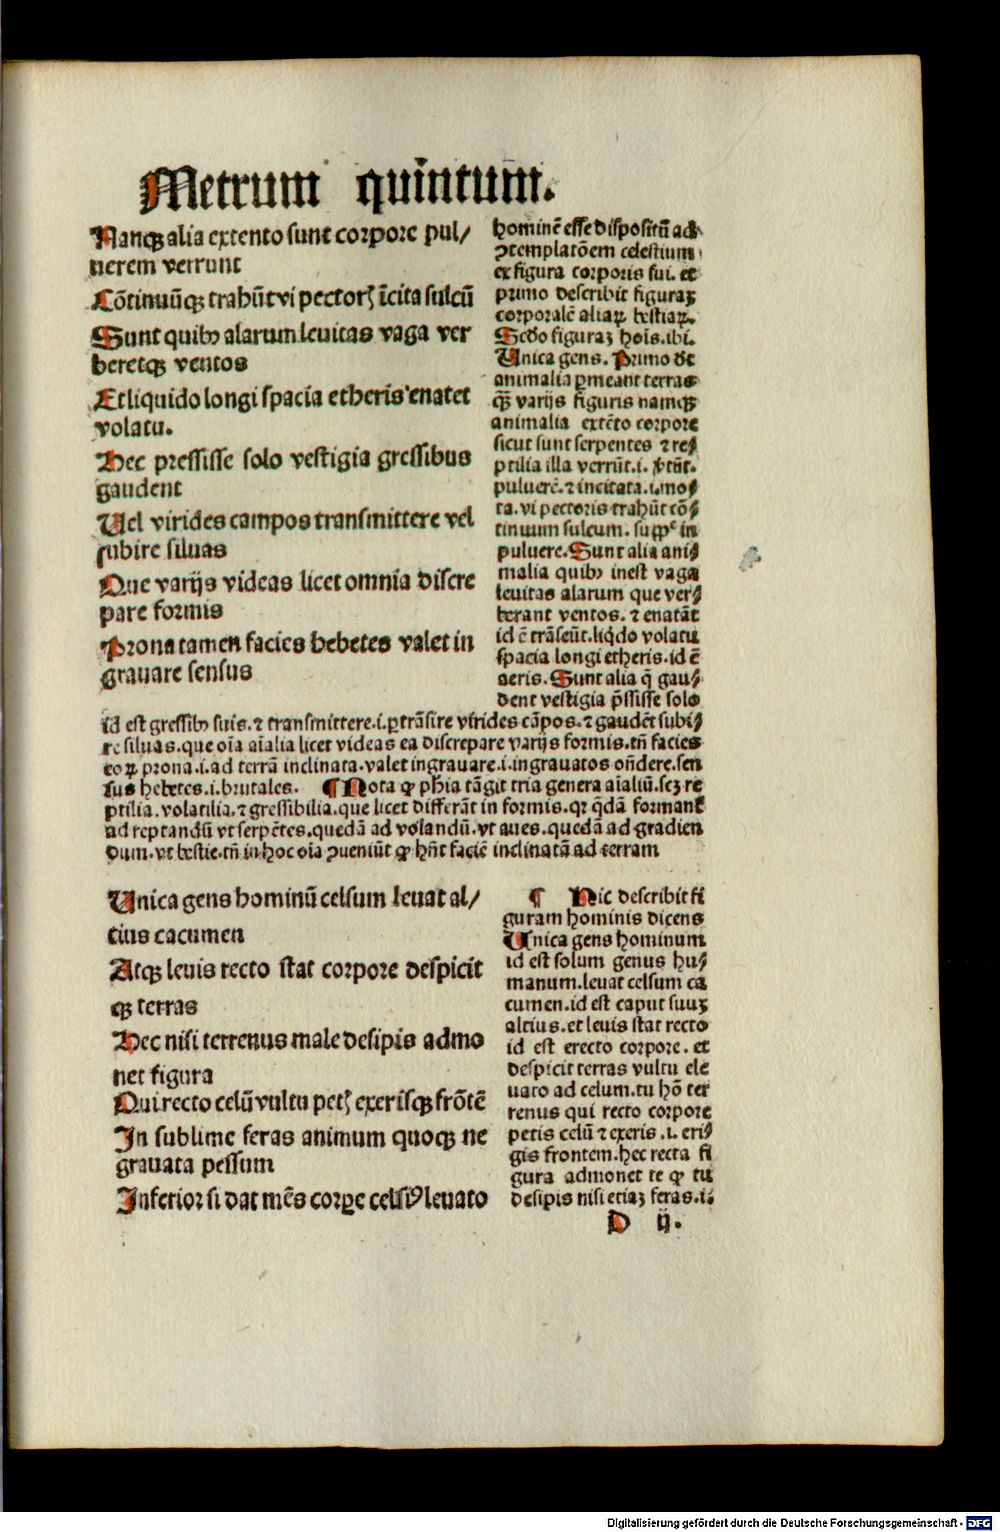 Metrum quintum.
Namqꝫ alia extento sunt corpore pul/
uerem verrunt
Cōtinuūqꝫ trahūt vi pectorꝭ īcita sulcū
Sunt quibꝰ alarum leuitas vaga ver
beretqꝫ ventos
Et liquido longi spacia etheris enatet
volatu.
Hec pressisse solo vestigia gressibus
gaudent
Uel virides campos transmittere vel
subire siluas
Que varijs videas licet omnia discre
pare formis
Prona tamen facies hebetes valet in
grauare sensus
hominē esse dispositū ad
ꝯtemplatōem celestium
ex figura corporis sui. et
primo describit figuraꝫ
corporalē aliaꝝ bestiaꝝ.
Scdo figuraꝫ hois. ibi.
Unica gens. Primo de
animalia ꝑmeant terras
qꝫ varijs figuris namqꝫ
animalia extēto corpore
sicut sunt serpentes ⁊ re/
ptilia illa verrūt .i. ꝟtūt.
puluerē. ⁊ incitata .i. mo/
ta. vi pectoris trahūt cō/
tinuum sulcum. supple in
puluere. Sunt alia ani/
malia quibꝰ inest vaga
leuitas alarum que ver/
berant ventos. ⁊ enatāt
id ē trāseūt. liqdo volatu
spacia longi etheris. id ē
aeris. Sunt alia q̄ gau/
dent vestigia p̄ssisse solo
id est gressibꝰ suis. ⁊ transmittere .i. ꝑtrāsire virides cāpos. ⁊ gaudēt subi/
re siluas. que oīa aīalia licet videas ea discrepare varijs formis. tn̄ facies
eoꝝ prona .i. ad terrā inclinata. valet ingrauare .i. ingrauatos on̄dere. sen
sus hebetes .i. brutales. ¶ Nota ꝙ phīa tāgit tria genera aīaliū. scꝫ re
ptilia. volatilia. ⁊ gressibilia. que licet differāt in formis. qꝛ qdā formant̄
ad reptandū vt serpētes. quedā ad volandū. vt aues. quedā ad gradien
dum. vt bestie. tn̄ in hoc oīa ꝯueniūt ꝙ hn̄t faciē inclinatā ad terram
Unica gens hominū celsum leuat al/
tius cacumen
Atqꝫ leuis recto stat corpore despicit
qꝫ terras
Hec nisi terrenus male desipis admo
net figura
Qui recto celū vultu petꝭ exerisqꝫ frōtē
In sublime feras animum quoqꝫ ne
grauata pessum
Inferior si dat mēs corpe celsiꝰ leuato
¶ Hic describit fi
guram hominis dicens
Unica gens hominum
id est solum genus hu/
manum. leuat celsum ca
cumen. id est caput suuꝫ
altius. et leuis stat recto
id est erecto corpore. et
despicit terras vultu ele
uato ad celum. tu hō ter
renus qui recto corpore
petis celū ⁊ exeris .i. eri/
gis frontem. hec recta fi
gura admonet te ꝙ tu
desipis nisi etiaꝫ feras .i.
D ij.
Digitalisierung gefördert durch die Deutsche Forschungsgemeinschaft - DFG